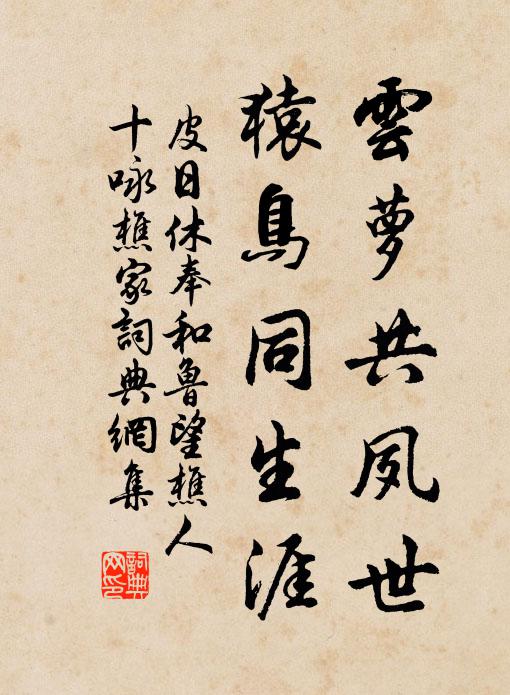 雲萝共夙世
猿鳥同生涯
皮日休奉和魯望樵人
十咏樵家詞典網集
詞典
网印